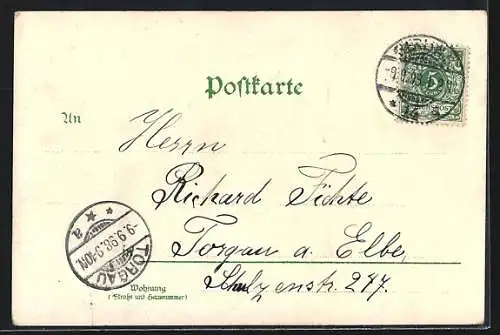 Postkarte
An
Herrn
Richard Fichte
Torgau a. Elbe
Wohnung
(Straße und Hausnummer)
TORGAU
9.9.98.9-10N.
* a *
5